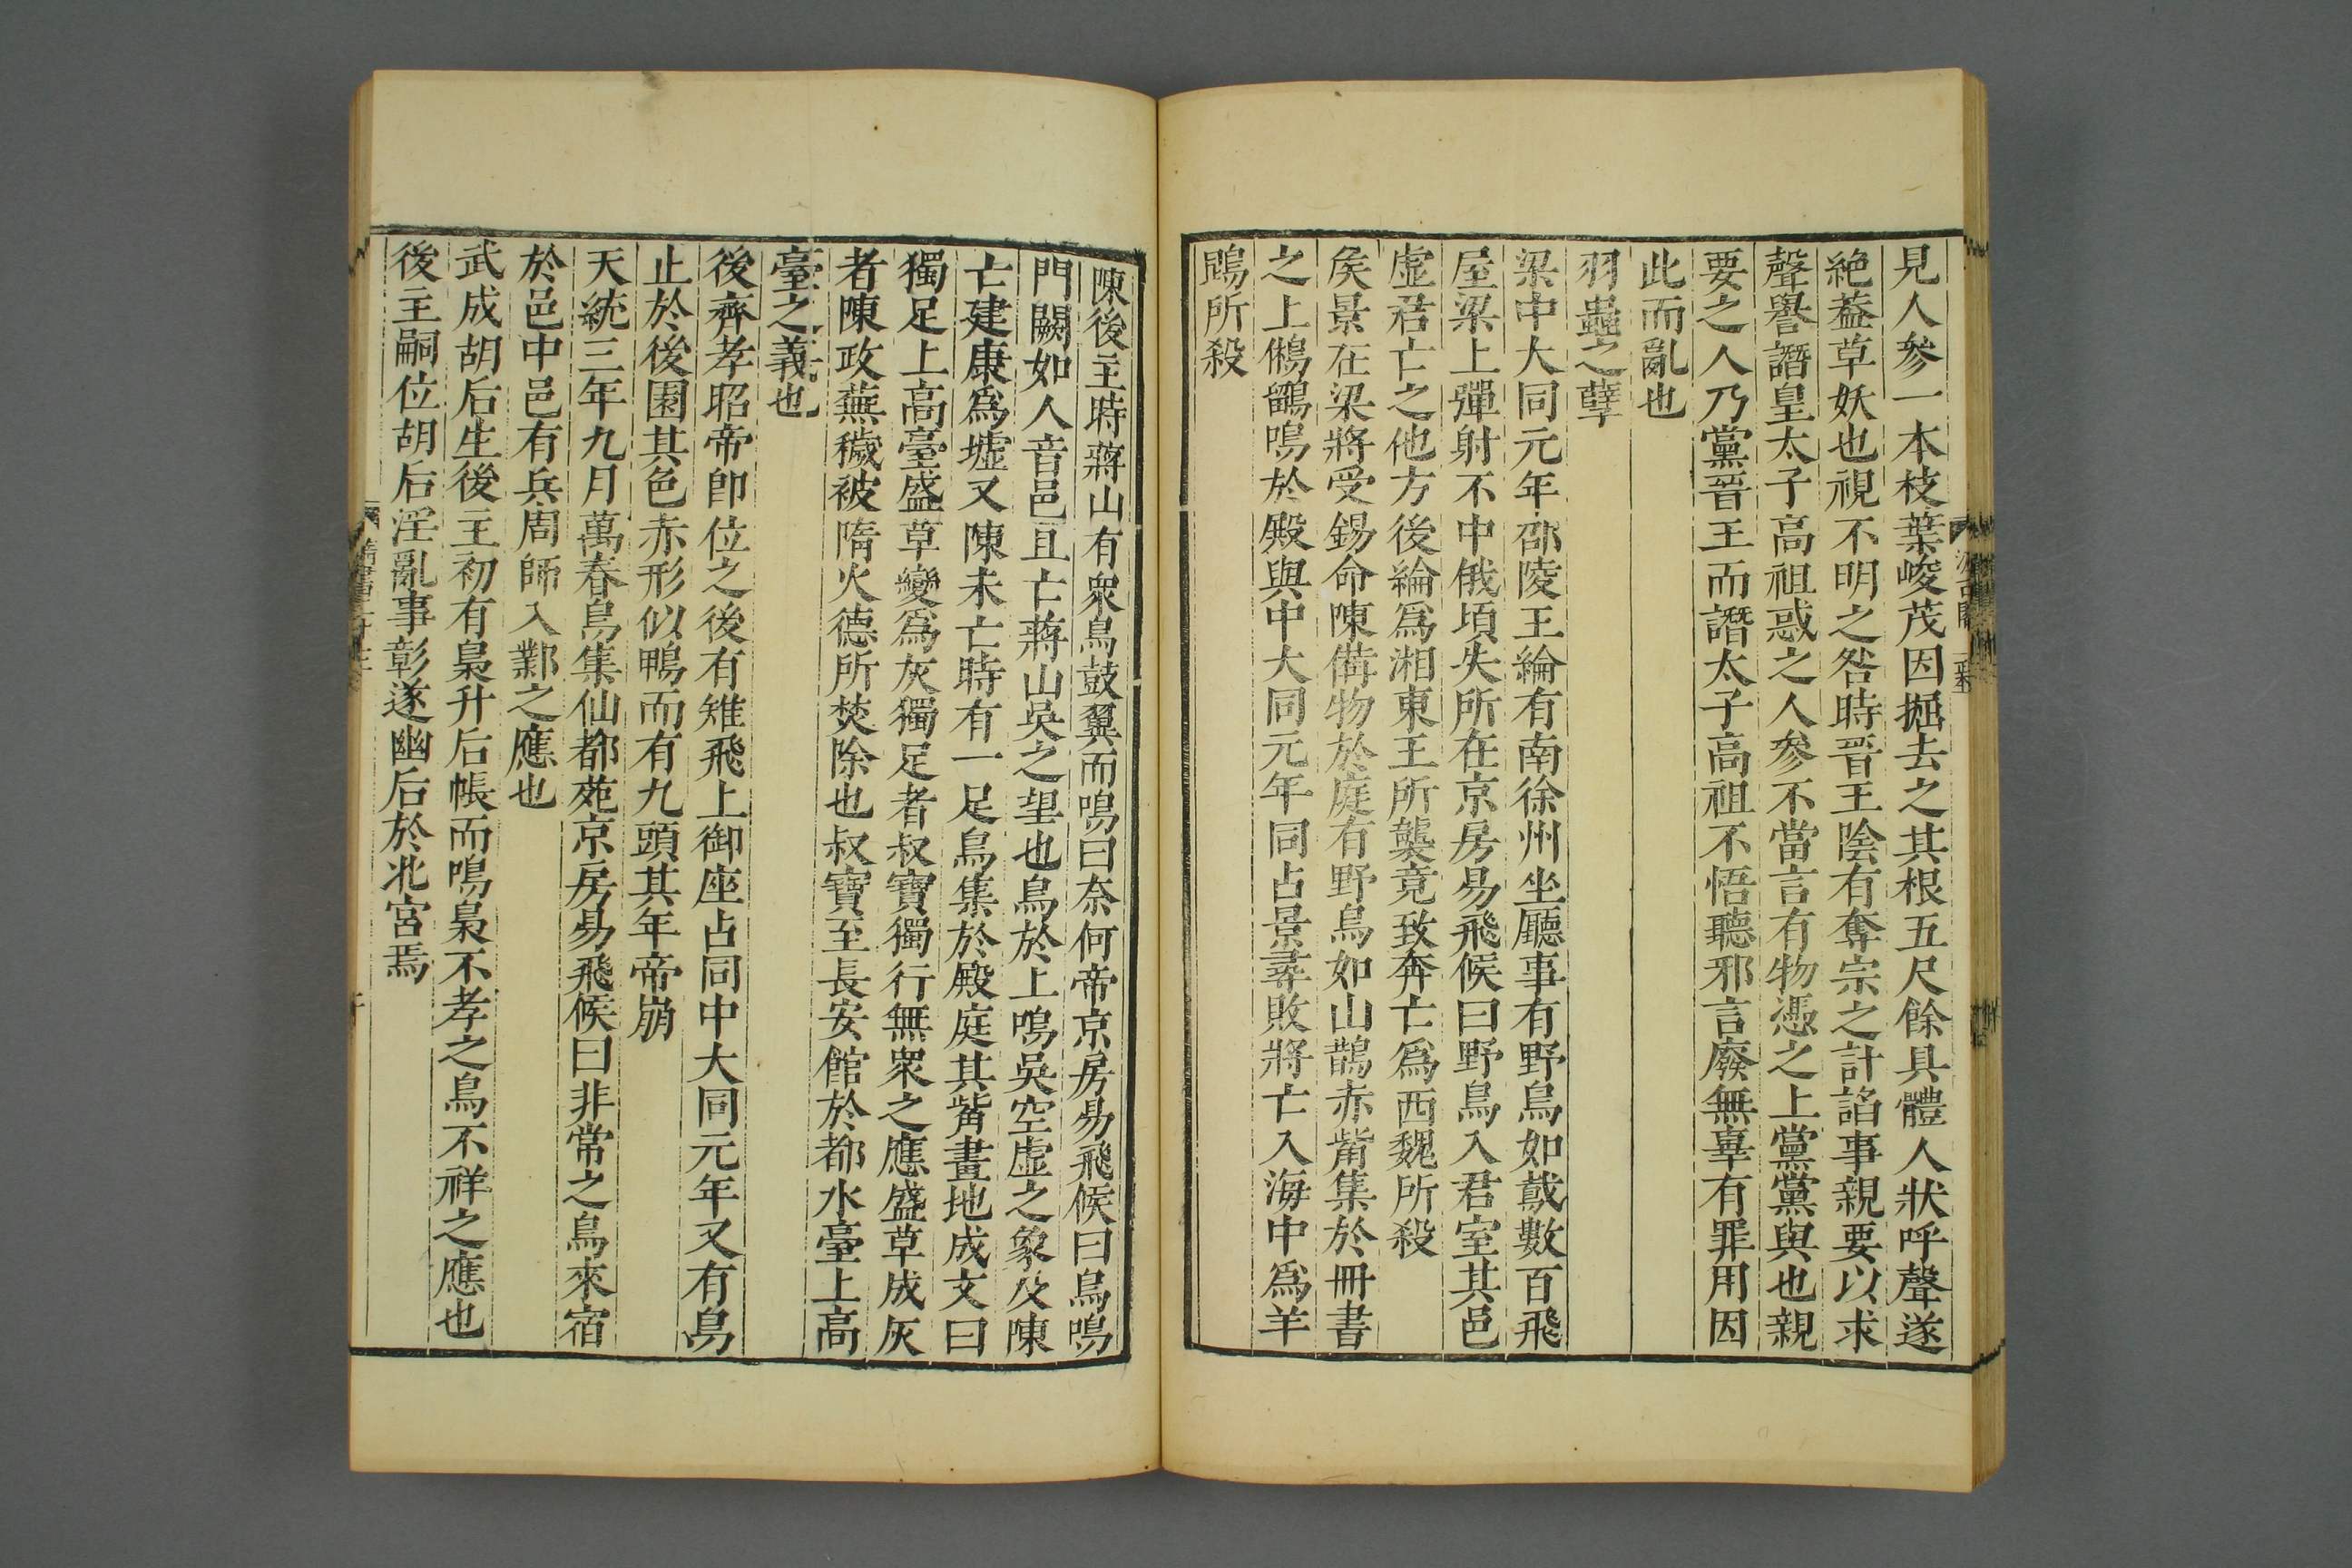 見人參一本枝葉峻茂因掘去之其根五尺餘具體人狀呼聲遂
絶蓋草妖也視不明之咎時晉王陰有奪宗之計諂事親要以求
聲譽譖皇太子高祖惑之人參不當言有物憑之上黨黨與也親
要之人乃黨晉王而譖太子高祖不悟聽邪言廢無辜有罪用因
此而亂也
羽蟲之孽
梁中大同元年邵陵王綸有南徐州坐廳事有野鳥如䳒數百飛
屋梁上彈射不中俄頃失所在京房易飛候曰野鳥入君室其邑
虛君亡之他方後綸爲湘東王所襲竟致奔亡爲西魏所殺
矦景在梁將受錫命陳備物於庭有野鳥如山鵲赤觜集於冊書
之上鵂鶹鳴於殿與中大同元年同占景尋敗將亡入海中爲羊
鵾所殺
陳後主時蔣山有衆鳥鼓翼而鳴曰奈何帝京房易飛候曰鳥鳴
門闕如人音邑且亡蔣山吳之望也鳥於上鳴吳空虛之象及陳
亡建康爲墟又陳未亡時有一足鳥集於殿庭其觜畫地成文曰
獨足上高臺盛草變爲灰獨足者叔寶獨行無衆之應盛草成灰
者陳政蕪穢被隋火德所焚除也叔寶至長安館於都水臺上高
臺之義也
後齊孝昭帝卽位之後有雉飛上御座占同中大同元年又有鳥
止於後園其色赤形似鴨而有九頭其年帝崩
天統三年九月萬春鳥集仙都苑京房易飛候曰非常之鳥來宿
於邑中邑有兵周師入鄴之應也
武成胡后生後主初有梟升后帳而鳴梟不孝之鳥不祥之應也
後主嗣位胡后淫亂事彰遂幽后於北宮焉